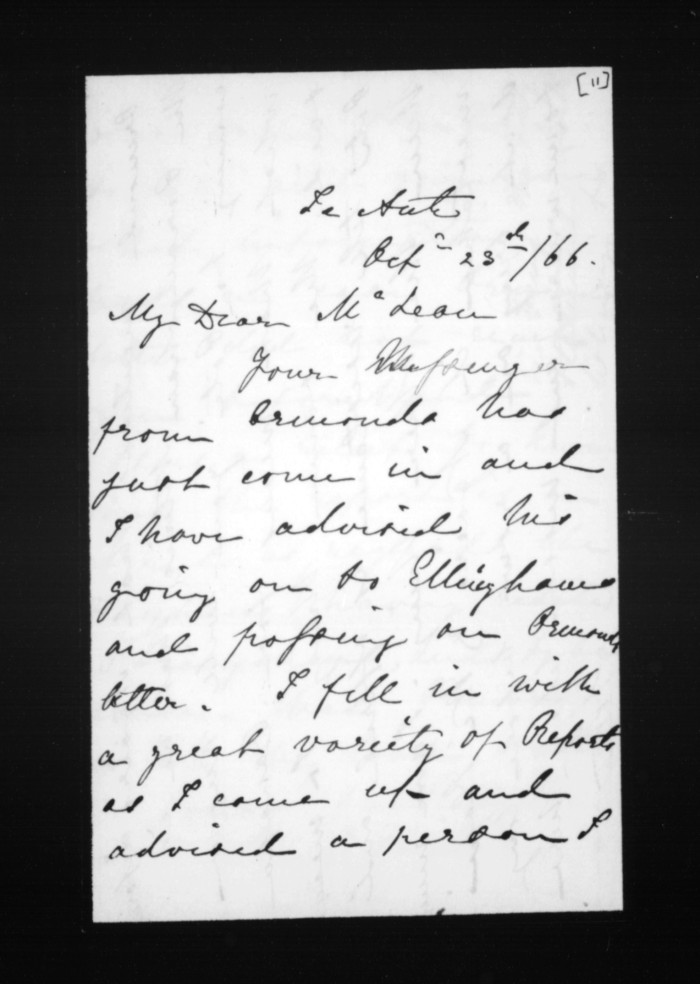 [11]
Te Aute
Octr 23rd/66.
My Dear McLean
Your Messenger
from Ormonds has
just come in and
I have advised his
going on to Ellinghams
and passing on Ormonds
letter. I fell in with
a great variety of Reports
as I came up and
advised a person I